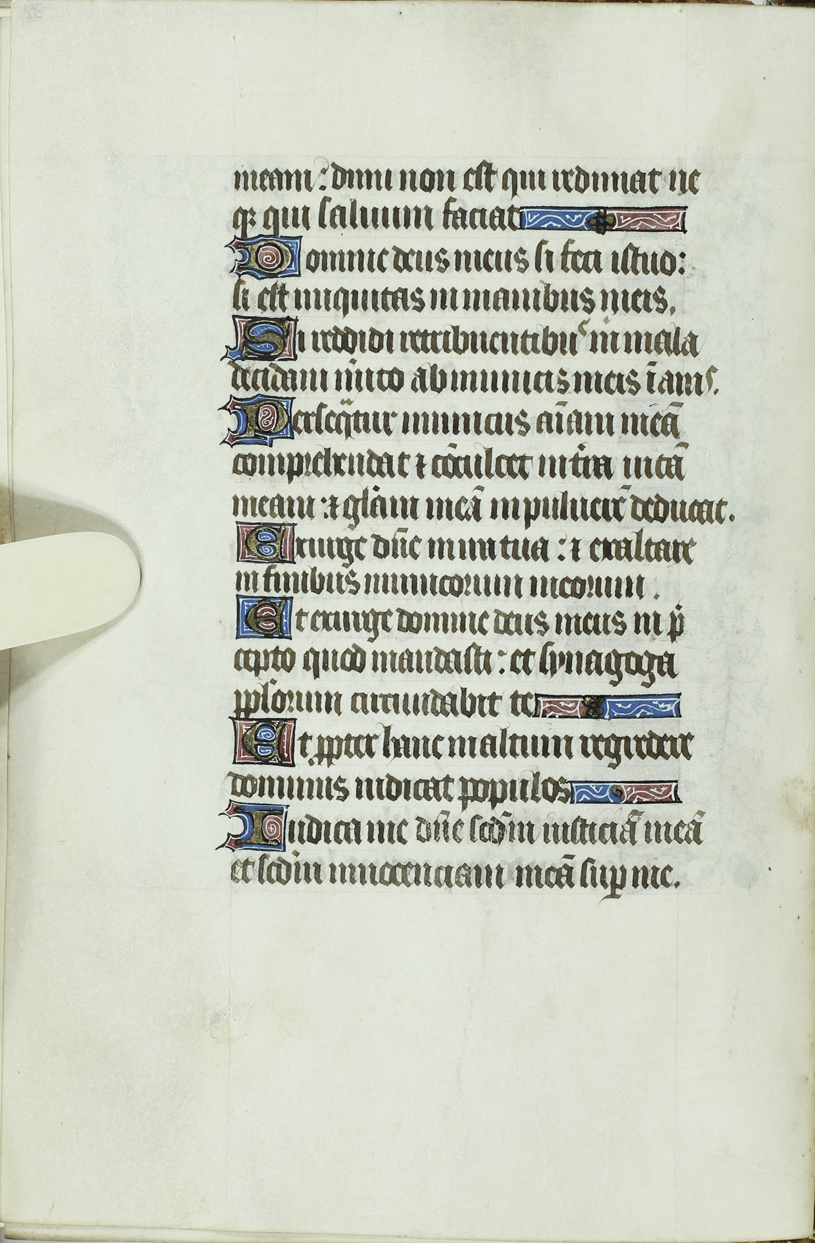 meam: dum non est qui redimat ne
qꝫ qui saluum faciat
Domine deus meus si feci istud:
si est iniquitas in manibus meis.
Si reddidi retribuentibus m̄ mala
decidam mĩto ab inimicis meis ĩanis.
Perseq̃tur inimicus aĩam meã
comprehendat ⁊ cõculcet in t̃ra uitã
meam: ⁊ gl̃am meã in puluerẽ deducat.
Exurge dñe in ira tua: ⁊ exaltare
in finibus inimicorum meorum.
Et exurge domine deus meus in p̃
cepto quod mandasti: et synagoga
ppl̃orum circundabit te
Et ꝓpter hanc in altum regredere
dominus iudicat populos
Iudica me dñe scd̃m iusticiã meã
et scd̃m innocenciam meã suꝑ me.